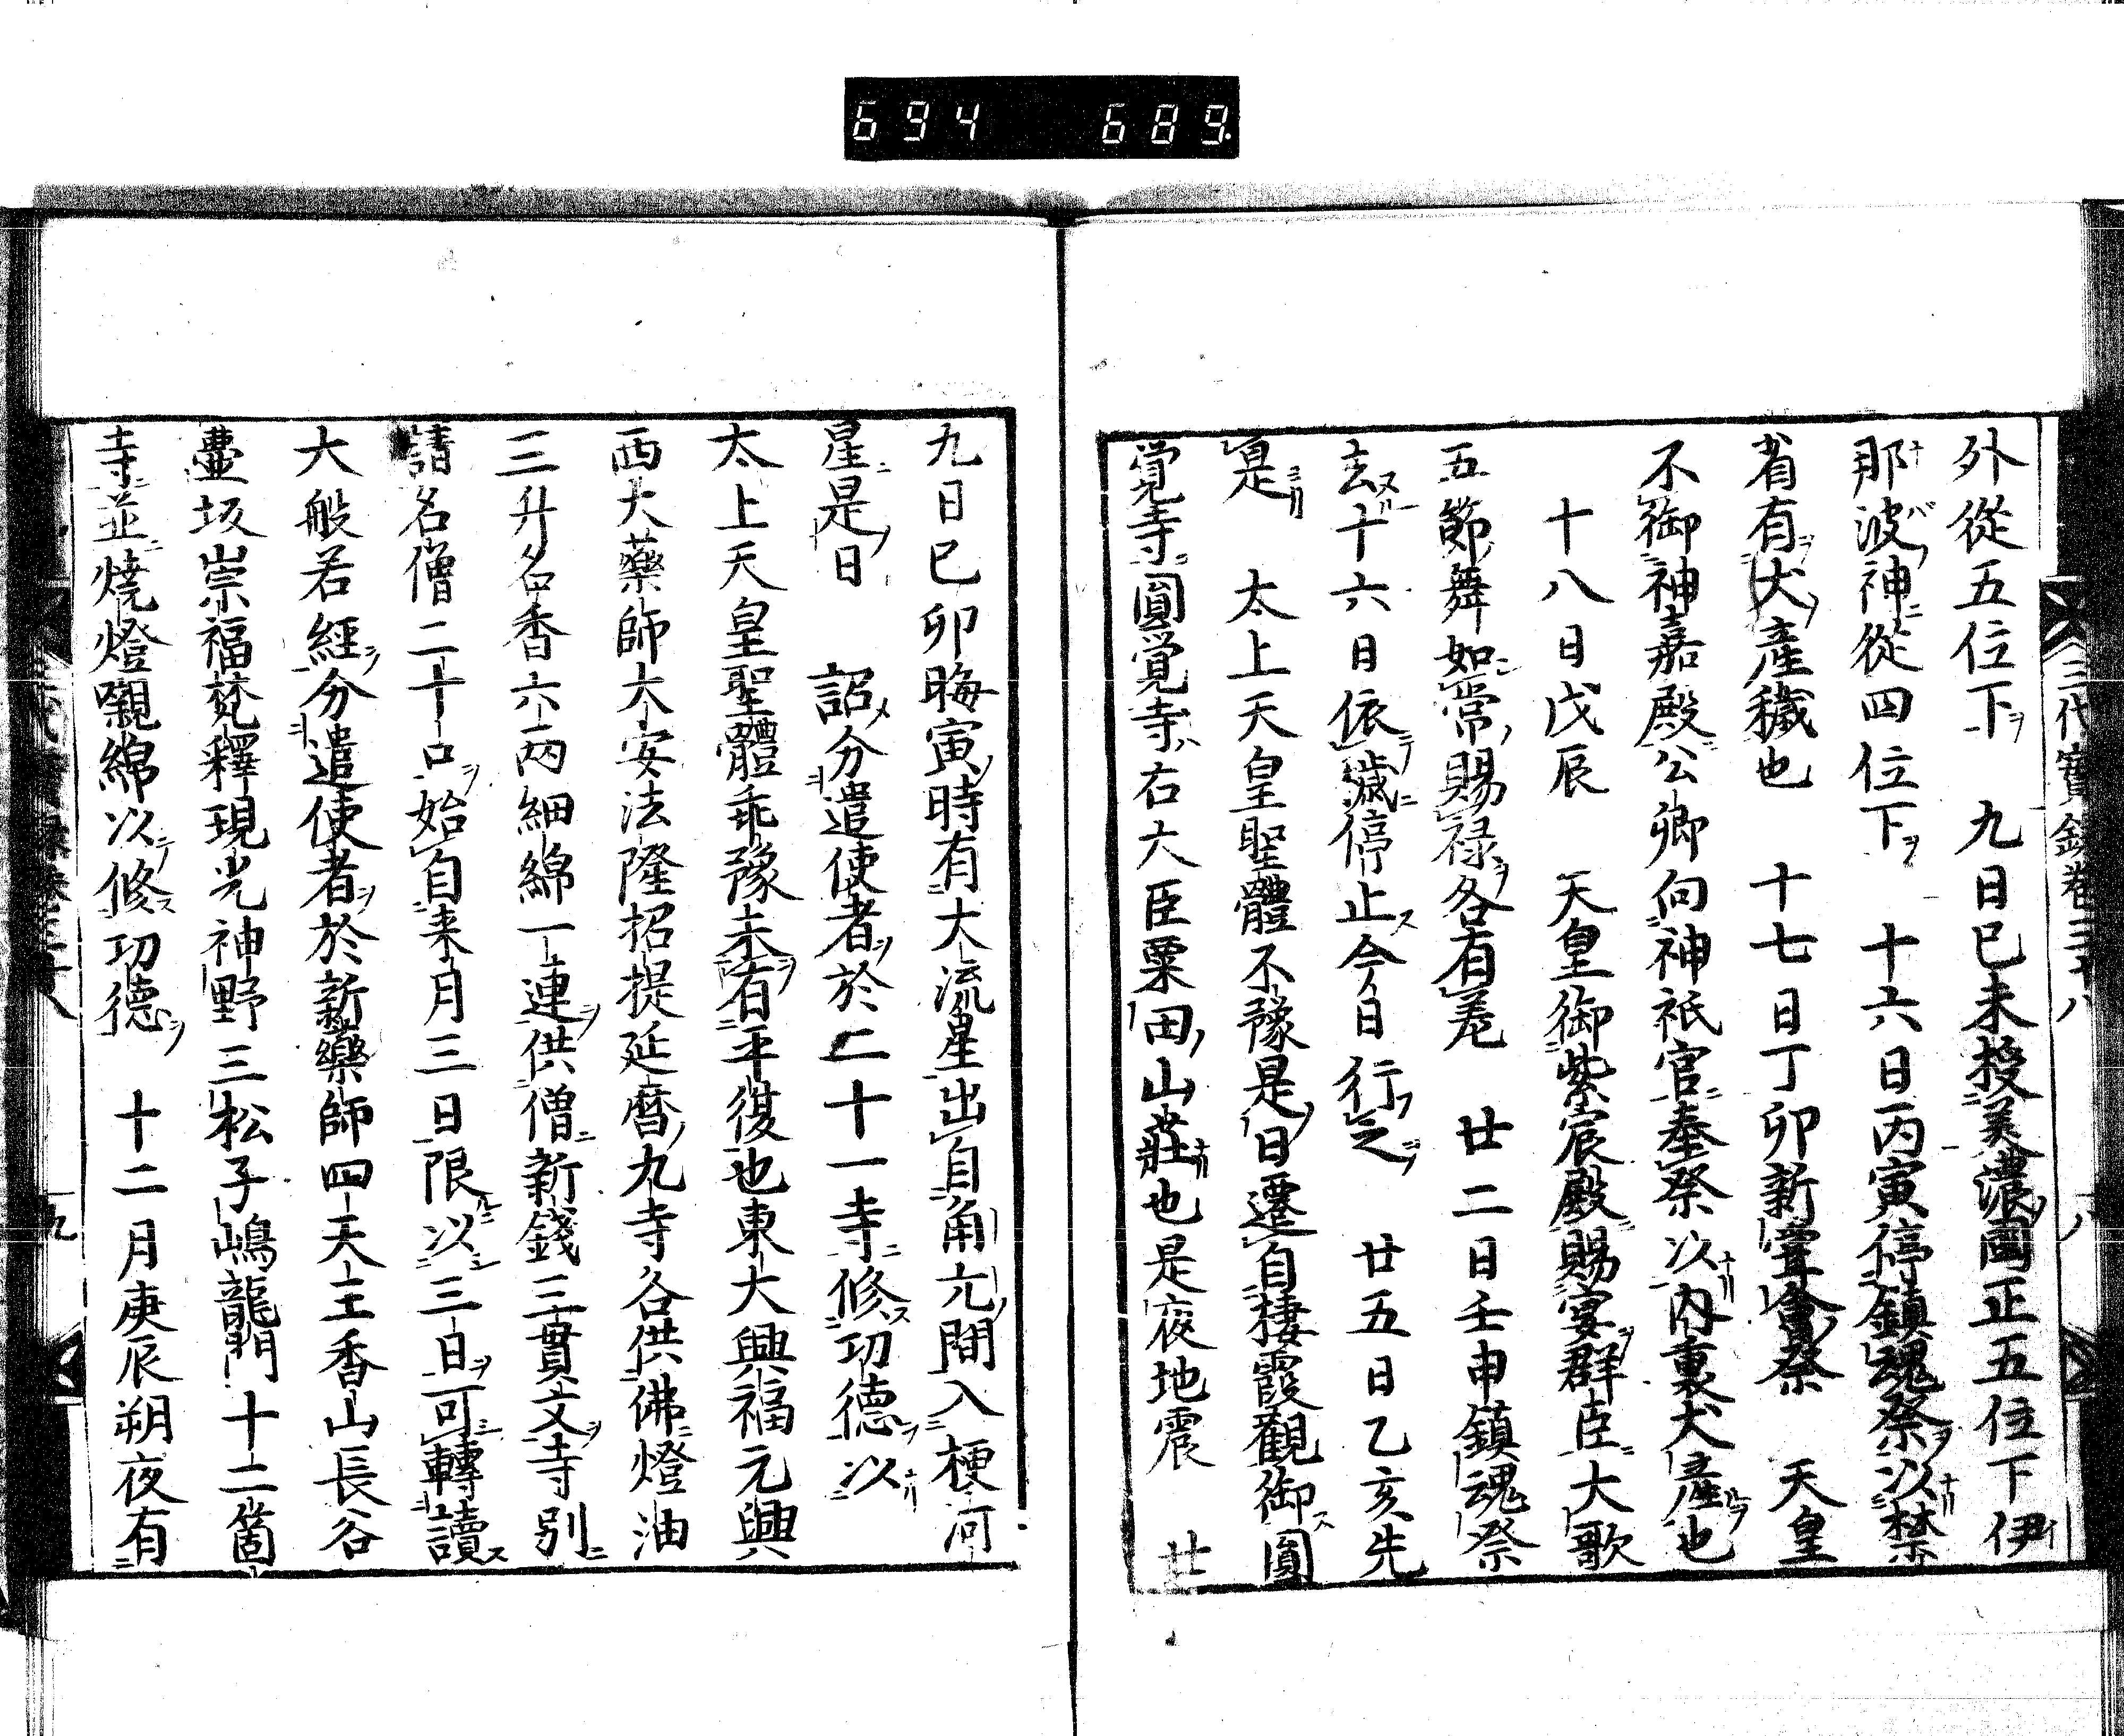 694 689.
三代實録卷三十八 八
外從五位下 九日己未授美濃國正五位下伊
那波神從四位下 十六日丙寅停鎮魂祭以禁
省有犬產穢也 十七日丁卯新嘗會祭 天皇
不御神嘉殿公卿向神祇官奉祭以内裏犬產也
十八日戊辰 天皇御紫宸殿賜宴群臣大歌
五節舞如常賜禄各有差 廿二日壬申鎮魂祭
去十六日依濊停止今日行之 廿五日乙亥先
是 太上天皇聖體不豫是日遷自棲霞觀御圓
覺寺圓覺寺右大臣粟田山莊也是夜地震 廿
九日己卯晦寅時有大流星出自角亢間入梗河
星是日 詔分遣使者於二十一寺修功德以
太上天皇聖體乖豫未有平復也東大興福元興
西大藥師大安法隆招提延暦九寺各供佛燈油
三升名香六兩細綿一連供僧新錢三貫文寺別
請名僧二十口始自来月三日限以三日可轉讀
大般若經分遣使者於新藥師四天王香山長谷
壷坂崇福梵釋現光神野三松子嶋龍門十二箇
寺並燒燈嚫綿以修功德 十二月庚辰朔夜有
九